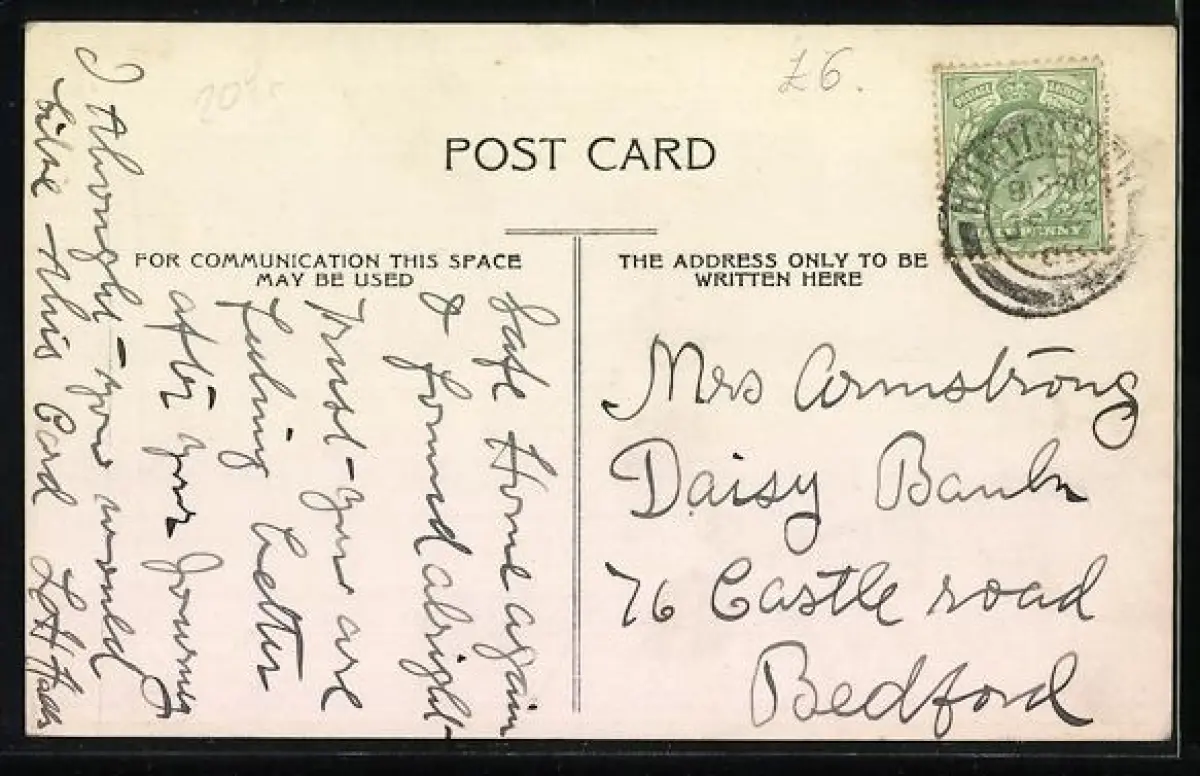 £6.
POST CARD
FOR COMMUNICATION THIS SPACE
MAY BE USED
THE ADDRESS ONLY TO BE
WRITTEN HERE
HALFPENNY
Safe Home again
& found alright
Trust you are
Feeling better
after your journey
I thought you would
like this Card
Mrs Armstrong
Daisy Bank
76 Castle road
Bedford